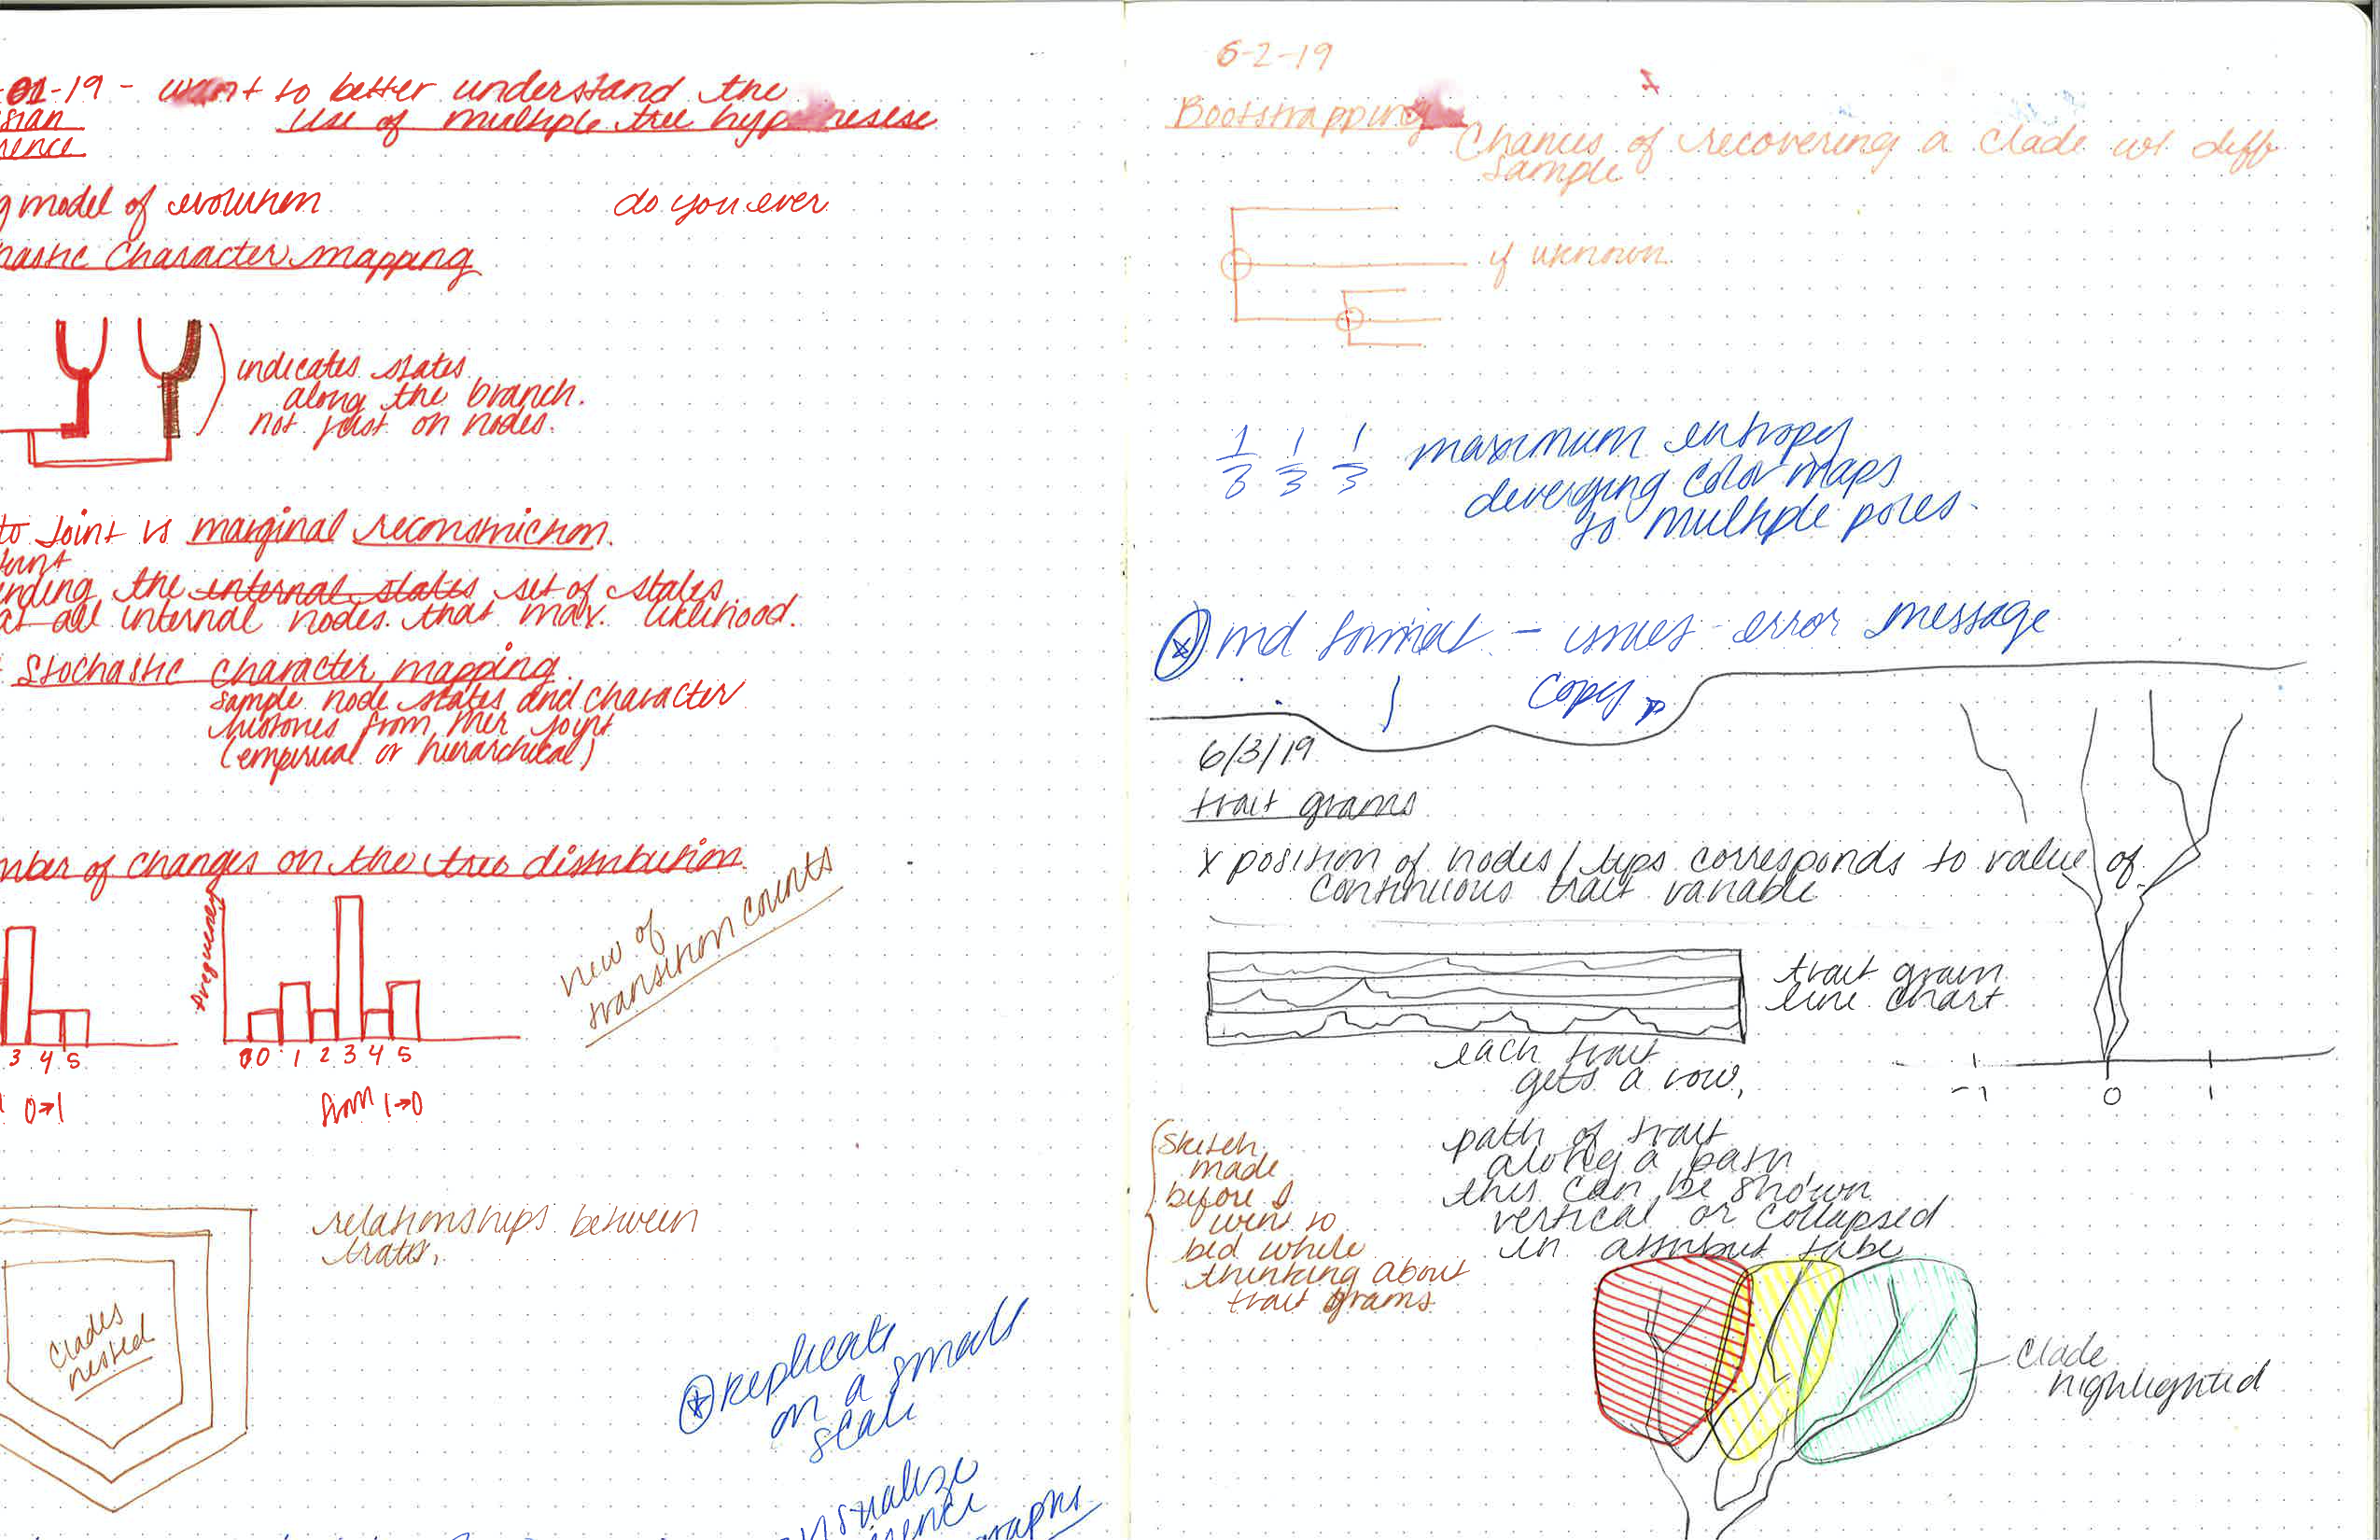 01-19 - want to better understand the
use of multiple tree hyp resese
model of evolution
do you ever
Character mapping
indicates states
along the branch.
not just on nodes.
to Joint vs marginal reconstruction.
the internal states set of states
at all internal nodes that max. likelihood.
Stochastic character mapping
sample node states and character
histories from ther joint
(empirical or hierarchical)
mber of changes on the tree distribution
frequency
3 4 5
0→1
0 1 2 3 4 5
from 1→0
view of
transition counts
Clades
nested
relationships between
traits.
replicate
on a small
scale
6-2-19
Bootstrapping
Chances of recovering a clade w/ diff
sample
if uknown
1/3 1/3 1/3 maximum entropy
deverging color maps
to multiple poles.
md format - issues - error message
copy
6/3/19
trait grams
x position of nodes / tips corresponds to value of
continuous trait variable
trait gram
line chart
each trait
gets a row,
-1 0 1
path of trait
along a path
this can be shown
vertical or collapsed
in attribut table
Sketch
made
before I
went to
bed while
thinking about
trait grams
Clade
highlighted